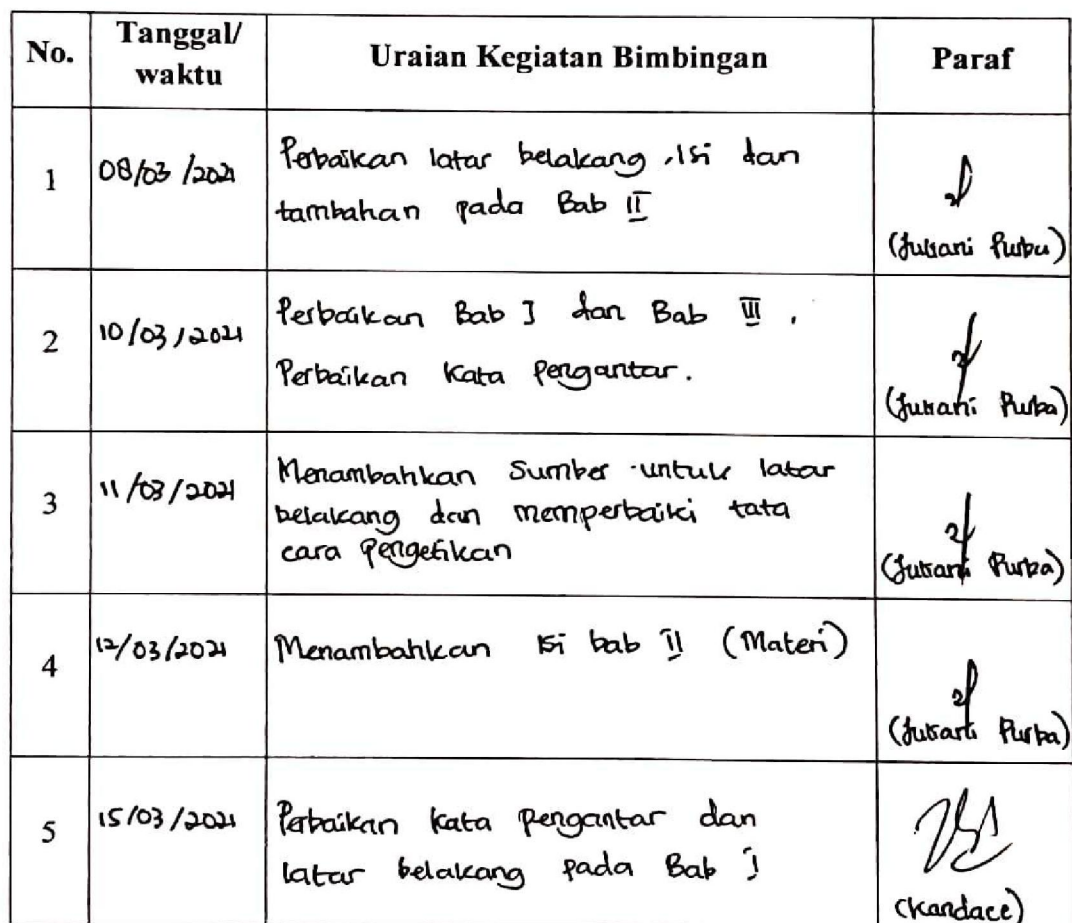 No. Tanggal/ waktu Uraian Kegiatan Bimbingan Paraf
1 08/03/2021 Perbaikan latar belakang, isi dan
tambahan pada Bab II
Purba)
2 10/03/2021 Perbaikan Bab I dan Bab III.
Perbaikan Kata Pengantar.
Purba)
3 11/03/2021 Menambahkan Sumber untuk latar
belakang dan memperbaiki tata
cara Pengetikan
Purba)
4 12/03/2021 Menambahkan isi bab II (Materi)
Purba)
5 15/03/2021 Perbaikan kata pengantar dan
latar belakang pada Bab I
(Kandace)